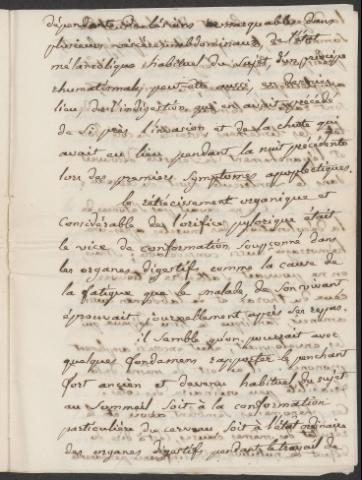 dépendante des lésions remarquables dans
plusieurs viscères abdominaux, de l'état
mélancolique habituel du sujet, d'un principe
rhumatismal, peut être aussi en dernier
lieu, de l'indigestion, qui en avait précédé
de si près l'invasion et de la chute qui
avait eu lieu pendant la nuit précédente
lors des premiers symptomes apoplectiques.
le rétrécissement organique et
Considérable de l'orifice pylorique était
le vice de conformation soupçonné dans
les organes digestifs comme la cause de
la fatigue que le malade de son vivant
éprouvait journellement après ses repas.
il semble qu'on pourrait avec
quelques fondemens rapporter le penchant
fort ancien et devenu habituel du sujet
au Sommeil Soit à la conformation
particulière du cerveau soit à l'état ordinaire
des organes digestifs pendant le travail de